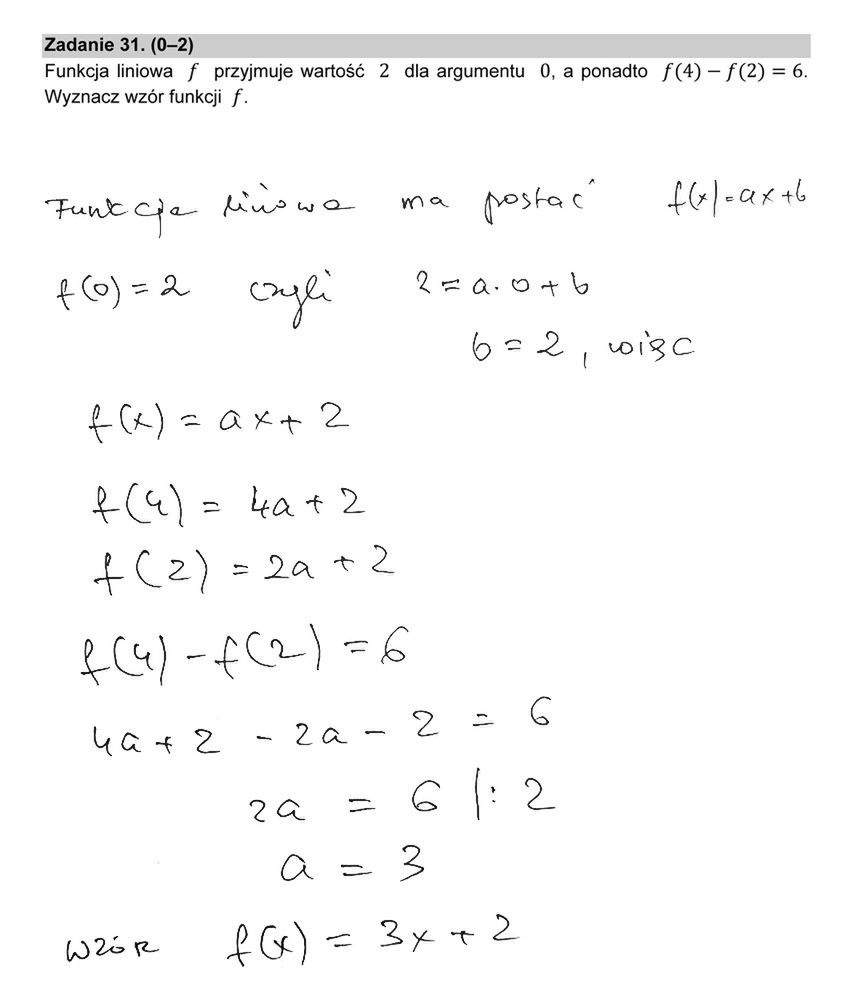 Zadanie 31. (0–2)
Funkcja liniowa f przyjmuje wartość 2 dla argumentu 0, a ponadto f(4) − f(2) = 6.
Wyznacz wzór funkcji f.
Funkcja liniowa ma postać f(x)=ax+b
f(0)=2 czyli 2=a·0+b
b=2, więc
f(x)=ax+2
f(4)=4a+2
f(2)=2a+2
f(4)-f(2)=6
4a+2-2a-2=6
2a=6 |:2
a=3
wzór f(x)=3x+2